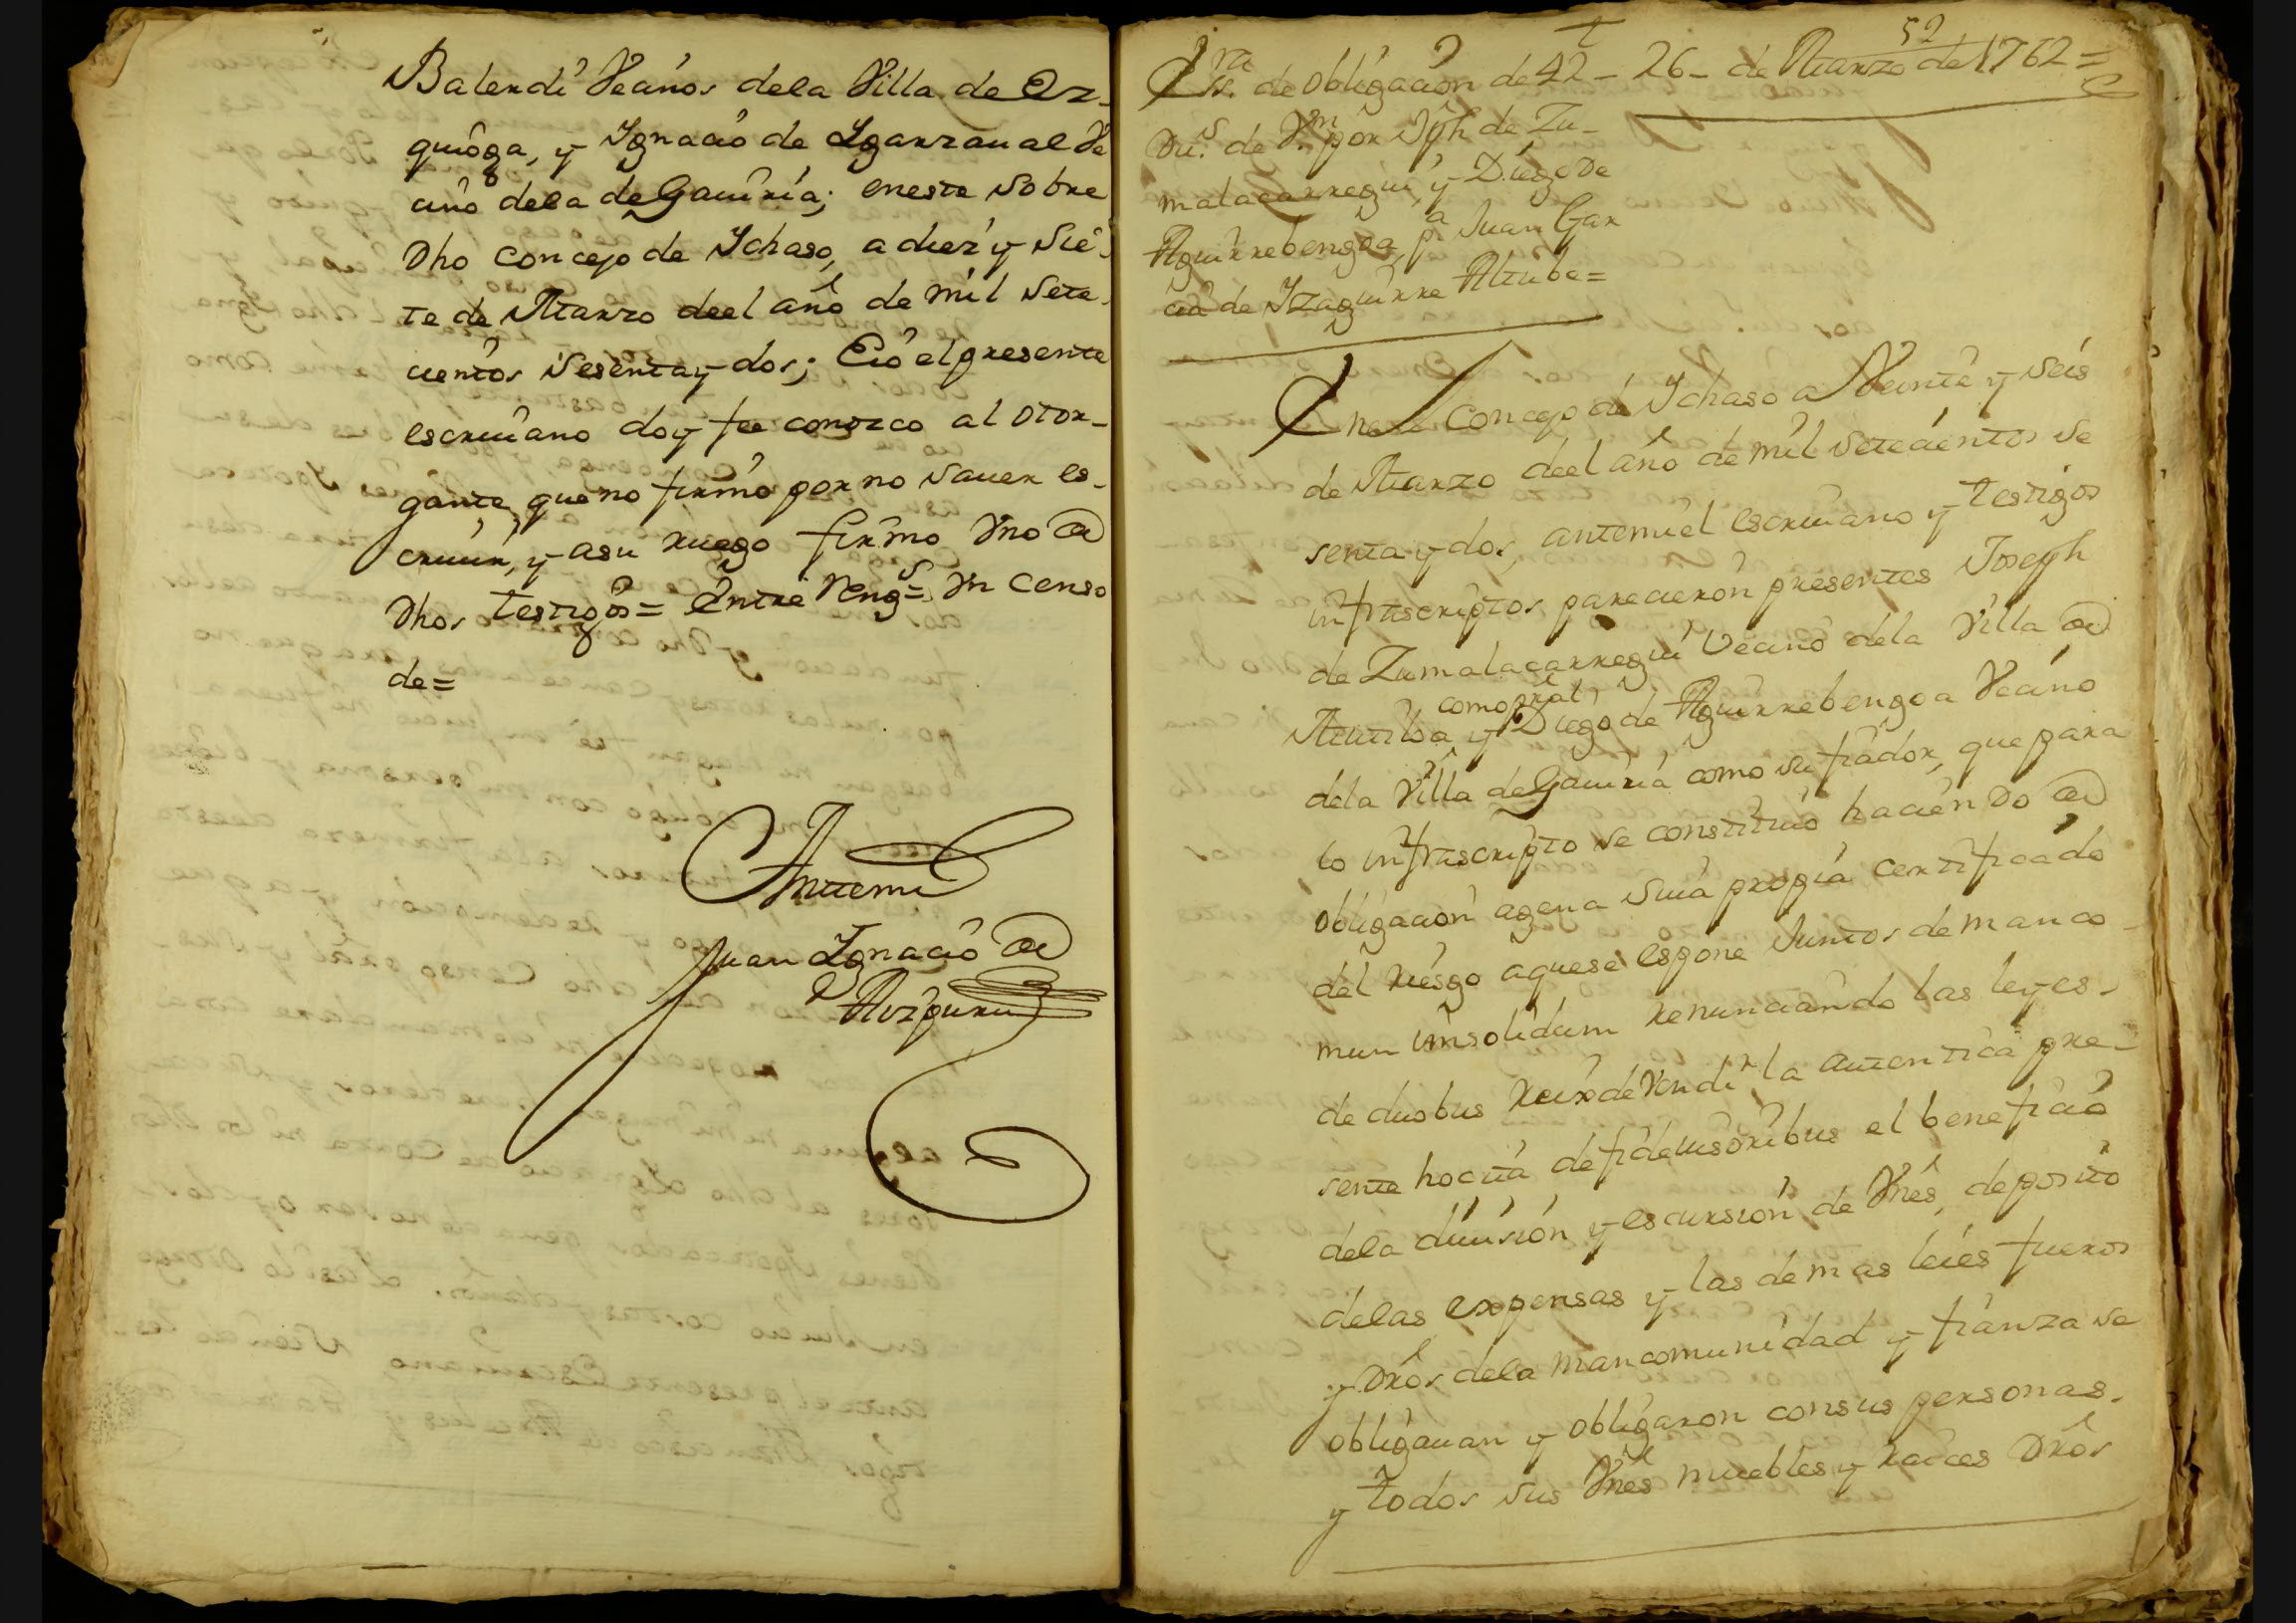 Balerdi Vecinos dela Villa de Ez-
quioga, y Ygnacio de Ygarzaual Ve
cino dela de Gauiria; eneste sobre
Dho Concejo de Ychaso, a diez y sie-
te de Marzo deel año de mil sete-
cientos sesenta y dos; E io el presente
escriuano doy fee conozco al otor-
gante, que no firmó por no sauer es-
criuir, y asu ruego firmó Vno de
Dhos testigos = Entre Rengs = Vn Censo
de =
Antemi
Juan Ygnacio de
Aizpuru
52
Essra. de obligacion de 42 - 26 - de Marzo de 1762 =
Dus. de Vn. por Jph de Zu-
malacarregui, y Diego De
Aguirrebengoa, pa Juan Gar
cia de Yzaguirre Altube =
Enel Concejo de Ychaso a Veinte y seis
de Marzo deel año de mil setecientos se
senta y dos, antemi el escriuano y testigos
infrascriptos parecieron presentes Joseph
de Zumalacarregui Vecino dela Villa de
como pral,
Mutiloa y Diego de Aguirrebengoa Vecino
dela Villa de Gauiria como su fiador, que para
lo infrascripto se constituió haciendo de
obligacion agena suia propia certificado
del riesgo aquese espone Juntos de manco-
mun insolidum renunciando las leyes
de duobus reix de Vendi la autentica pre-
sente hocita de fideiusoribus el beneficio
dela diuision y escursion de Vnes, deposito
delas expensas y las demas leies fueros
y Dros dela mancomunidad y fianza se
obligauan y obligaron consus personas
y todos sus Vnes muebles y raices Dros